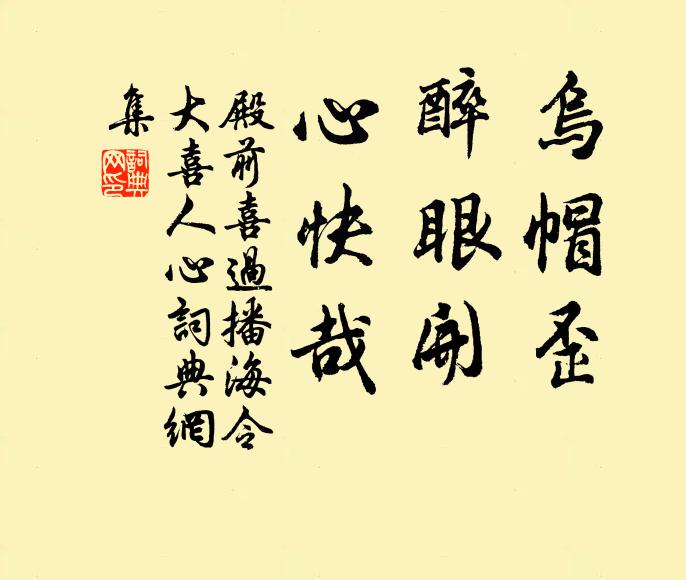 烏帽歪
醉眼開
心快哉
殿前喜過播海令
大喜人心詞典網
集
詞典
网印